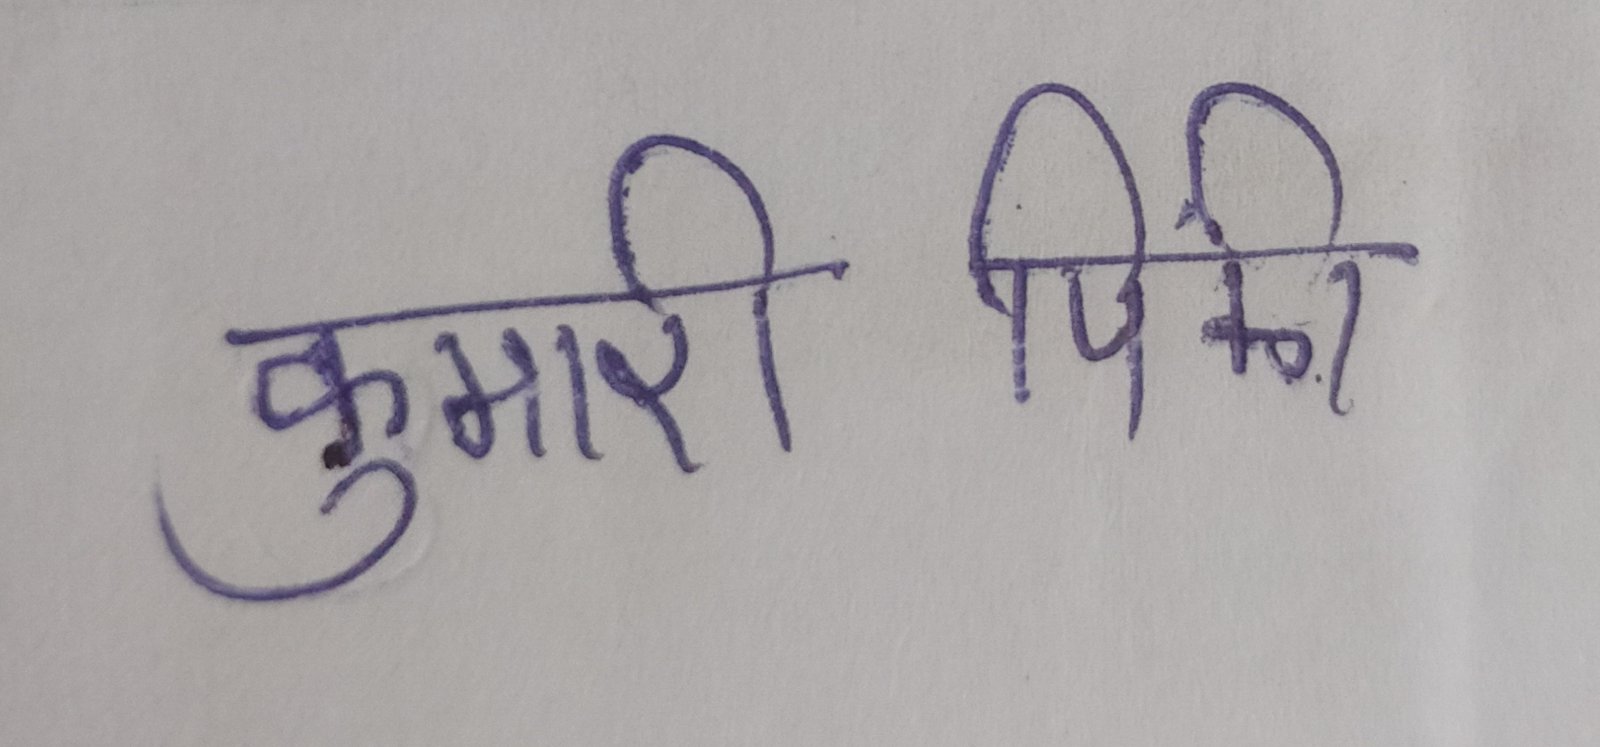 कुमारी पिंकी